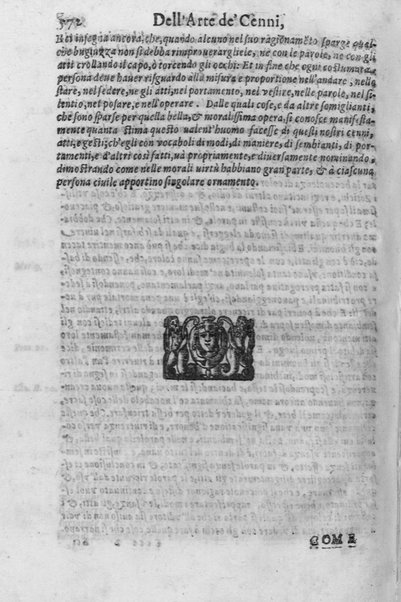 572 Dell'Arte de' Cenni,
Et ci insegna ancora, che, quando alcuno nel suo ragionamẽto sparge qual-
che bugiuzza non si debba rimprouerargliele, ne con le parole, ne con gli
atti crollando il capo, ò torcendo gli occhi: Et in fine che ogni costumata
persona deue hauer risguardo alla misura e proportione nell'andare, nello
stare, nel sedere, ne gli atti, nel portamento, nel vestire, nelle parole, nel si-
lentio, nel posare, e nell'operare. Dalle quali cose, e da altre somiglianti,
chè sono sparse per quella bella, & moralissima opera, si conosce manifesta-
mente quanta stima questo ualent'huomo facesse di questi nostri cenni,
atti, e gesti; ch'egli con vocaboli di modi, di maniere, di sembianti, di por-
tamenti, e d'altri così fatti, uà propriamente, e diuersamente nominando,
dimostrando come nelle morali uirtù habbiano gran parte, & à ciascuna
persona ciuile apportino singolare ornamento.
COME